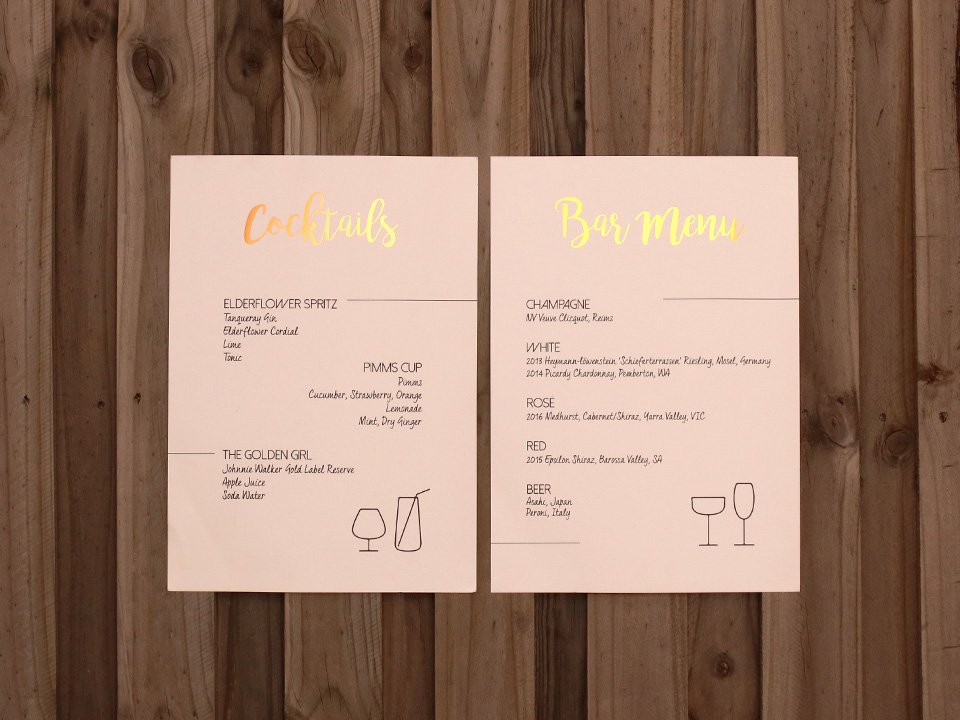 Cocktails
ELDERFLOWER SPRITZ
Tanqueray Gin
Elderflower Cordial
Lime
Tonic
PIMMS CUP
Pimms
Cucumber, Strawberry, Orange
Lemonade
Mint, Dry Ginger
THE GOLDEN GIRL
Johnnie Walker Gold Label Reserve
Apple Juice
Soda Water
Bar Menu
CHAMPAGNE
NV Veuve Clicquot, Reims
WHITE
2013 Heymann-löwenstein 'Schieferterrassen' Riesling, Mosel, Germany
2014 Picardy Chardonnay, Pemberton, WA
ROSE
2016 Medhurst, Cabernet/Shiraz, Yarra Valley, VIC
RED
2015 Epsilon Shiraz, Barossa Valley, SA
BEER
Asahi, Japan
Peroni, Italy